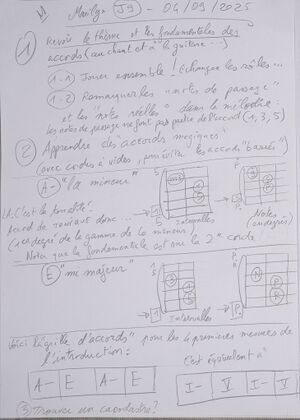 Marilyn J9 - 04/09/2025
1 Revoir le thème et les fondamentales des
accords (au chant et à la guitare...)
1-1 Jouer ensemble! Echanger les rôles...
1-2 Remarquer les "notes de passage"
et les "notes réelles" dans la mélodie.
Les notes de passage ne font pas partie de l'accord (1, 3, 5)
2 Apprendre des accords magiques:
(avec cordes à vides, pour éviter les accords "barrés")
A- "la mineur"
LA: C'est la tonalité!
Accord de donc...
(1er degré de la gamme de la mineur)
Noter que la fondamentale est sur la 2e corde
Intervalles
Notes
(en degrés)
E "mi majeur"
Intervalles
Voici la "grille d'accords" pour les 4 premières mesures de
l'introduction:
C'est équivalent à
A- E A- E
I- V I- V
3 Trouver un capodastre?